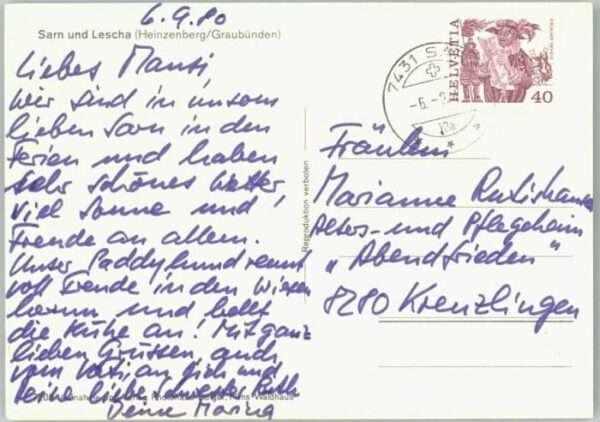 6.9.80
Sarn und Lescha (Heinzenberg/Graubünden)
Liebes Mausi
Wir sind in unserm
lieben Sarn in den
Ferien und haben
sehr schönes Wetter,
viel Sonne und
Freude an allem.
Unser Paddyhund rennt
voll Freude in den Wiesen
herum und bellt
die Kühe an! Mit ganz
lieben Grüssen, auch
vom Vati an dich und
deine liebe Schwester Ruth
Deine Marina
Waldhaus
Reproduktion verboten
7431 S
-6.-
HELVETIA
40
Fräulein
Marianne Rutishauser
Alters- und Pflegeheim
"Abendfrieden"
8280 Kreuzlingen